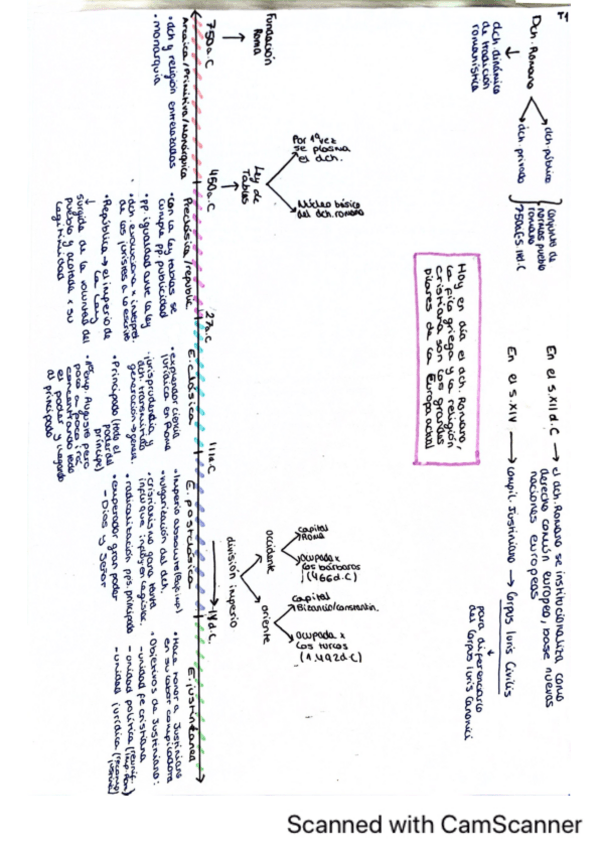 T1
Dch. Romano
dch público
dch privado
conjunto de
normas pueblo
romano
750aC-s IIId.C
dch dinámico
de tradición
romanística
En el s.XII d.C → el dch. Romano se institucionaliza como
derecho común europeo, base nuevas
naciones europeas
En el s.XIV → compil. Justiniano → Corpus Iuris Civilis
para diferenciarlo
del Corpus Iuris Canonici
Hoy en día el dch. Romano,
la fica griega y la religión
cristiana son los grandes
pilares de la Europa actual
Por 1ª vez
se plasma
el dch.
Núcleo básico
del dch. romano
Ley de
Tablas
Fundación
Roma
capital
Roma
ocupada x
los bárbaros
(466d.C)
occidente
capital
Bizancio/constantin.
ocupada x
los turcos
(1.492d.C)
oriente
división imperio
750a.C
450a.C
27a.C
IIIa.C
IVd.C.
Arcaica/Primitiva/Monárquica
Preclásica/republic.
E.clásica
E. postclásica
E. justinianea
•dch y religión entrelazadas
•monarquía
•con la ley tablas se
cumple pp. publicidad
•pp. igualdad ante la ley
•dch. evoluciona x interpret.
de los juristas a lo escrito
•República → el imperio de
la Ley
surgida de la voluntad del
pueblo y acotada x su
legitimidad
•esplendor ciencia
jurídica en Roma
•jurisprudencia y
dch. transmitido
generación → gener.
•Principado (todo el
poder del
príncipe)
•1º emp. Augusto pero
poco a poco irá
concentrando todo
el poder y llegando
al principado
•Imperio absoluto (Bajo imp)
•vulgarización del dch.
•cristianismo gana tanta
influ que influye en legislac.
•radicalización pps. principado
•emperador gran poder
- Dios y Señor
•Hace honor a Justiniano
en su labor compiladora
•Objetivos de Justiniano:
-unidad fe cristiana
-unidad política (reunif.
imp Rom)
-unidad jurídica
Scanned with CamScanner